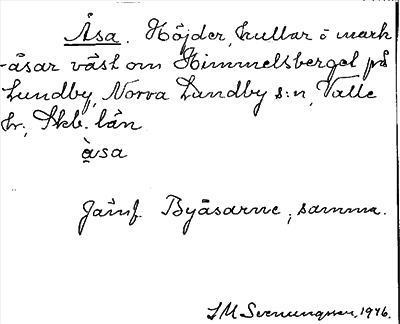 Åsa. Höjder, kullar i mark
-åsar väst om Himmelsberget på
Lundby, Norra Lundby s:n, Valle
hr., Skb. län
åsa
Jämf. Byåsarne, samma.
S M Svenungsson, 1946.